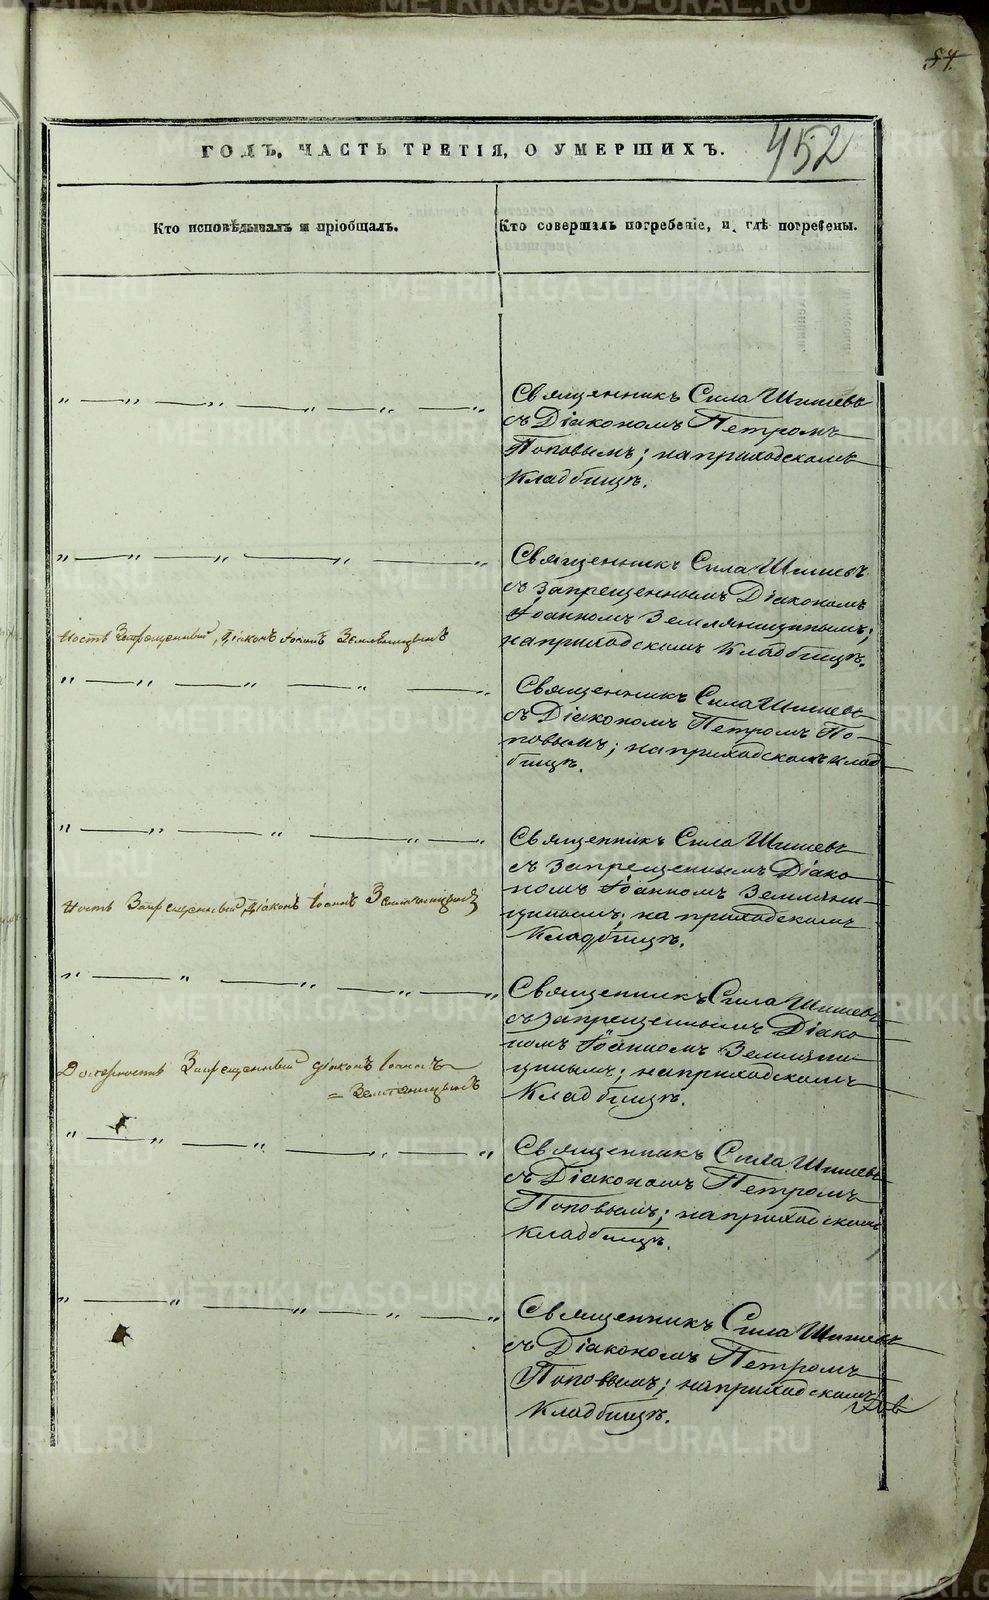 54.
452
ГОДЪ, ЧАСТЬ ТРЕТІЯ, О УМЕРШИХЪ.
Кто исповѣдывалъ и пріобщалъ.
Кто совершалъ погребеніе, и гдѣ погребены.
" — " — " — " — " — "
Священникъ Сила Шишевъ
съ Діакономъ Петромъ
Поповымъ; на приходскомъ
кладбищѣ.
" — " — " — " — "
Священникъ Сила Шишевъ
съ запрещеннымъ Діакономъ
Іоанномъ Земляницынымъ;
на приходскомъ кладбищѣ.
ность Запрещенный Діаконъ Іоаннъ Земляницынъ
" — " — " — " — "
Священникъ Сила Шишевъ
съ Діакономъ Петромъ По-
повымъ; на приходскомъ клад
бищѣ.
" — " — " — " — "
Священникъ Сила Шишевъ
съ запрещеннымъ Діако
номъ Іоанномъ Земляни-
цынымъ; на приходскомъ
кладбищѣ.
ность Запрещенный Діаконъ Іоаннъ Земляницынъ
" — " — " — " — "
Священникъ Сила Шишевъ
съ запрещеннымъ Діако
номъ Іоанномъ Земляни
цынымъ; на приходскомъ
кладбищѣ.
Должность Запрещенный діаконъ Іоаннъ
= Земляницынъ
" — " — " — " — "
Священникъ Сила Шишевъ
съ Діакономъ Петромъ
Поповымъ; на приходскомъ
кладбищѣ.
" — " — " — " — "
Священникъ Сила Шишевъ
съ Діакономъ Петромъ
Поповымъ; на приходскомъ
кладбищѣ.
METRIKI.GASO-URAL.RU